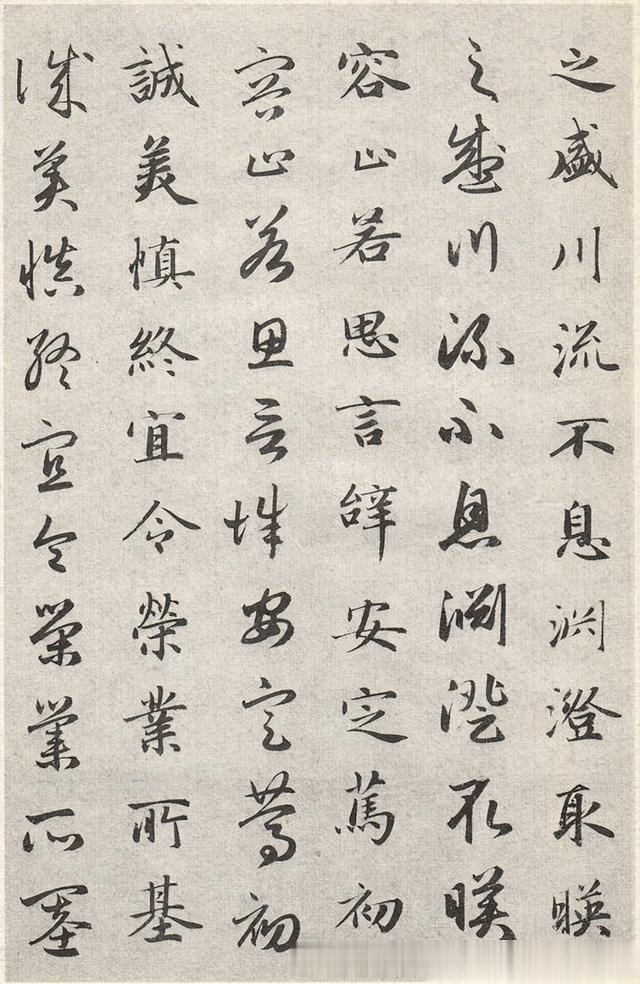 之盛川流不息渊澄取暎
之盛川流不息渊澄取暎
容止若思言辝安定蔦初
容止若思言辝安定蔦初
誠美慎終宜令榮業所基
誠美慎終宜令榮業所基